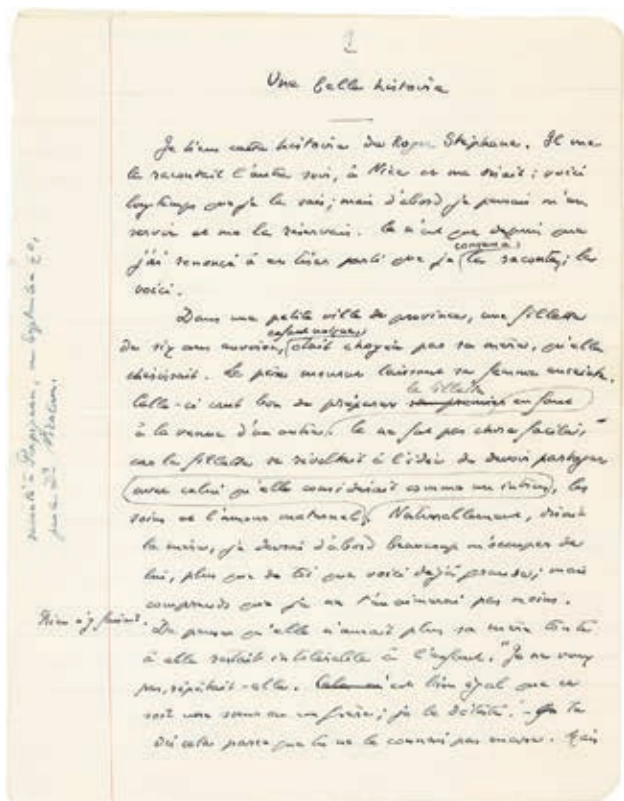 1
Une belle histoire
Je tiens cette histoire de Roger Stéphane. Il me
la racontait l'autre soir, à Nice et me disait : voici
longtemps que je la sais ; mais d'abord je pensais m'en
servir et me la réservais. Ce n'est que depuis que
consens à
j'ai renoncé à en tirer parti que je la raconter ; la
voici.
Dans une petite ville de province, une fillette
enfant unique,
de six ans environ, était choyée par sa mère, qu'elle
chérissait. Le père mourut laissant sa femme enceinte.
la fillette
Celle-ci crut bon de préparer son premier enfant
à la venue d'un autre. Ce ne fut pas chose facile,
car la fillette se révoltait à l'idée de devoir partager
avec celui qu'elle considérait comme un intrus, les
soins et l'amour maternel. Naturellement, disait
la mère, je devrai d'abord beaucoup m'occuper de
lui, plus que de toi que voici déjà grande ; mais
comprends que je ne t'en aimerai pas moins.
Rien n'y faisait.
De penser qu'elle n'aurait plus sa mère toute
à elle restait intolérable à l'enfant. "Je ne veux
pas, répétait-elle. est bien égal que ce
soit une sœur ou un frère ; je le déteste." - Tu
dis cela parce que tu ne le connais pas encore. Mais
raconté à Perpignan, en Septembre 40,
par le Dr